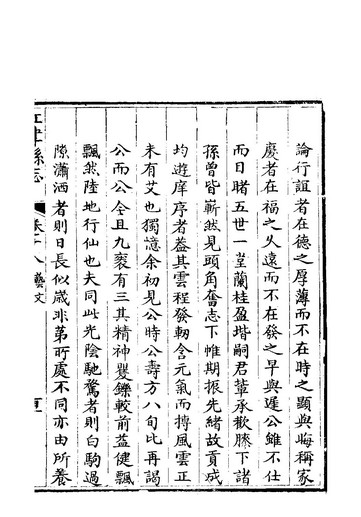 論行誼者在德之厚薄而不在時之顯與晦稱家
慶者在福之久遠而不在發之早與遲公雖不仕
而日睹五世一堂蘭桂盈堦嗣君輩承歡膝下諸
孫曾皆嶄然見頭角奮志下帷期振先緒故貢成
均遊庠序者葢其雲程發軔含元氣而摶風雲正
未有艾也獨憶余初見公時公壽方八旬比再謁
公而公仝且九袠有三其精神矍鑠較前益健飄
飄然陸地行仙也夫同此光陰馳騖者則白駒過
隙瀟洒者則日長似歲非第所處不同亦由所養
江津縣志
卷十八藝文